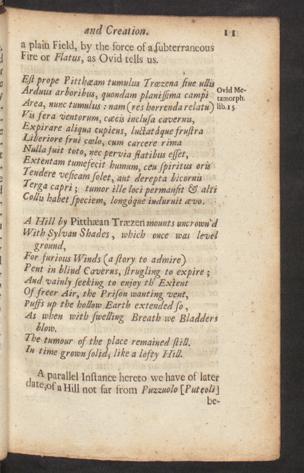 and Creation. 11
a plain Field, by the force of a subterraneous
Fire or Flatus, as Ovid tells us.
Est prope Pitthæam tumulus Træzena sine ullis
Arduus arboribus, quondam planissima campi
Area, nunc tumulus: nam (res horrenda relatu)
Vis fera ventorum, cæcis inclusa cavernis,
Expirare aliqua cupiens, luctatáque frustra
Liberiore frui cælo, cum carcere rima
Nulla fuit toto, nec pervia flatibus esset,
Extentam tumefecit humum, ceu spiritus oris
Tendere vesicam solet, aut derepta bicornis
Terga capri; tumor ille loci permansit & alti
Collis habet speciem, longóque induruit ævo.
Ovid Me-
tamorph.
lib.15.
A Hill by Pitthæan Træzen mounts uncrown'd
With Sylvan Shades, which once was level
ground,
For furious Winds (a story to admire)
Pent in blind Caverns, strugling to expire;
And vainly seeking to enjoy th' Extent
Of freer Air, the Prison wanting vent,
Puffs up the hollow Earth extended so,
As when with swelling Breath we Bladders
blow.
The tumour of the place remained still,
In time grown solid, like a lofty Hill.
A parallel Instance hereto we have of later
date, of a Hill not far from Puzzuolo [Puteoli]
be-